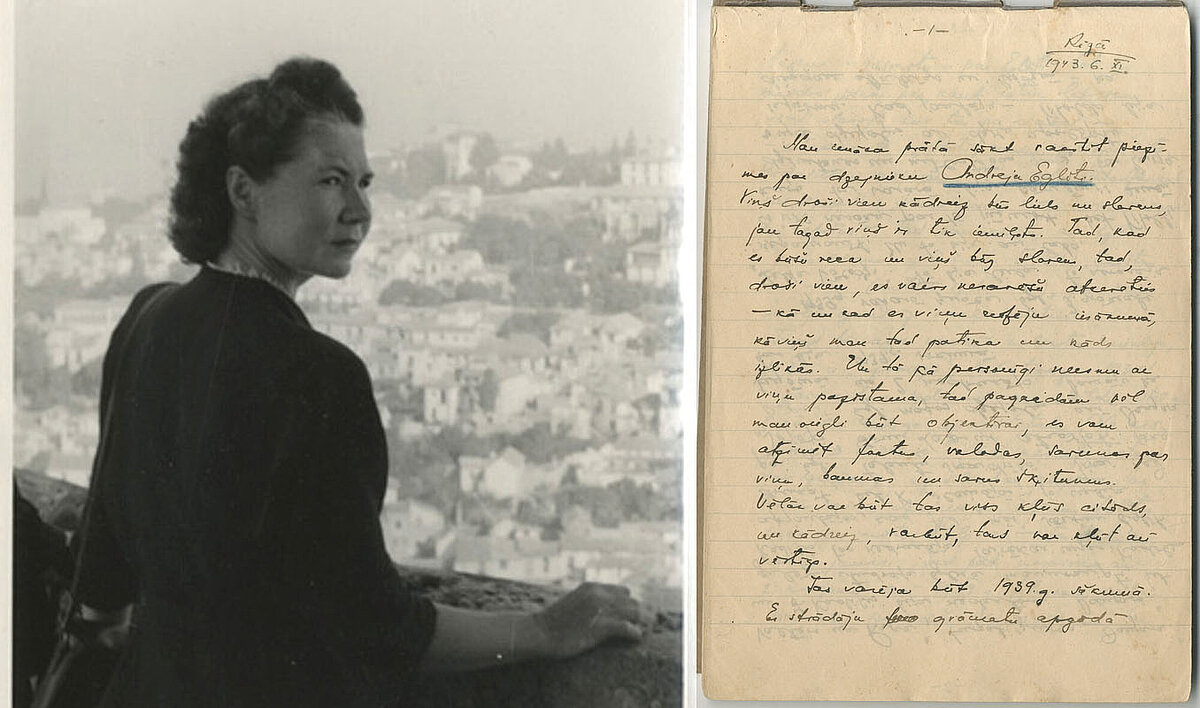 -1-
Rīgā
1943. 6. XI.
Man ienāca prātā sākt rakstīt piezī-
mes par dzejnieku Andreju Eglīti.
Viņš droši vien kādreiz būs liels un slavens,
jau tagad viņš ir tik iemīļots. Tad, kad
es būšu veca un viņš būs slavens, tad,
droši vien, es vairs nevarēšu atcerēties
– kā un kad es viņu redzēju
kā viņš man tad patika un kāds
izlikās. Un tā kā personīgi neesmu ar
viņu pazīstama, tad pagaidām vēl
man viegli būt objektīvai, es varu
atzīmēt faktus, valodas, sarunas par
viņu, baumas un savus
Vēlāk var būt tas viss kļūs citāds,
un kādreiz, varbūt, tas var kļūt arī
vērtīgs.
Tas varēja būt 1939.g. sākumā.
Es strādāju grāmatu apgādā